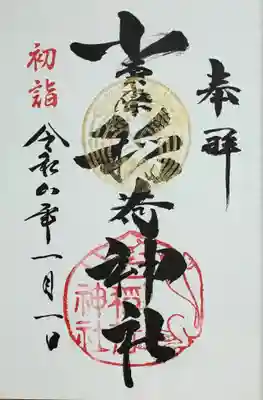 奉拝
稲荷神社
初詣
令和六年一月一日
神社